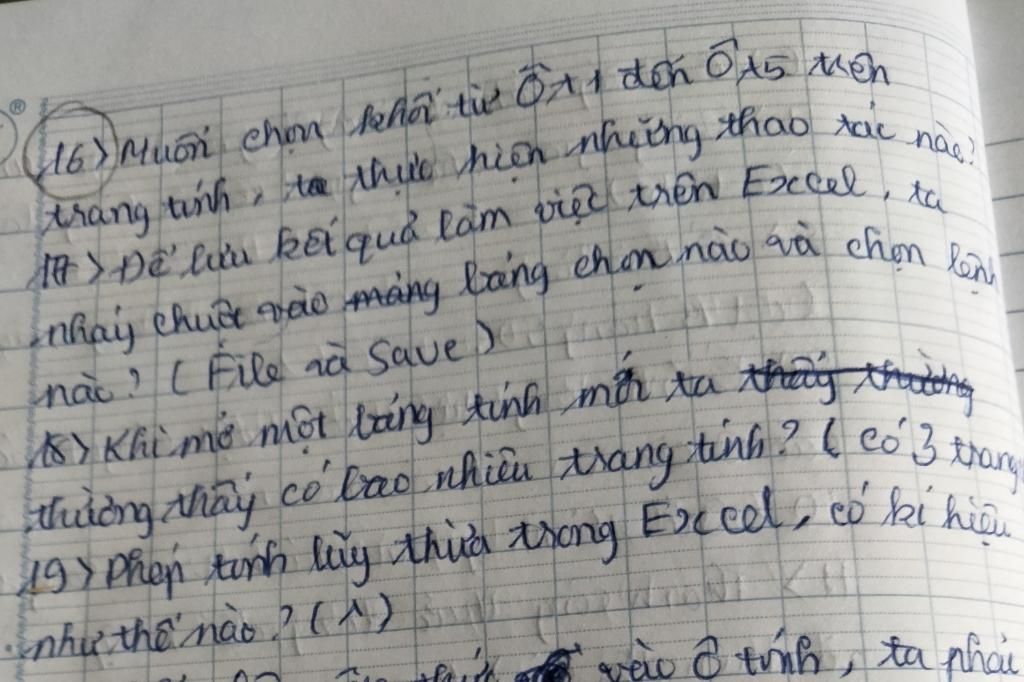 ®
16) Muốn chọn khối từ Ô A1 đến Ô A5 trên
trang tính, ta thực hiện những thao tác nào?
17) Để lưu kết quả làm việc trên Excel, ta
nháy chuột vào máng bảng chọn nào và chọn lệnh
nào? (File và Save)
18) Khi mở một bảng tính mới ta thấy thường
thường thấy có bao nhiêu trang tính? (có 3 trang
19) Phép tính lũy thừa trong Excel, có kí hiệu
như thế nào? (^)
vào ô tính, ta phải